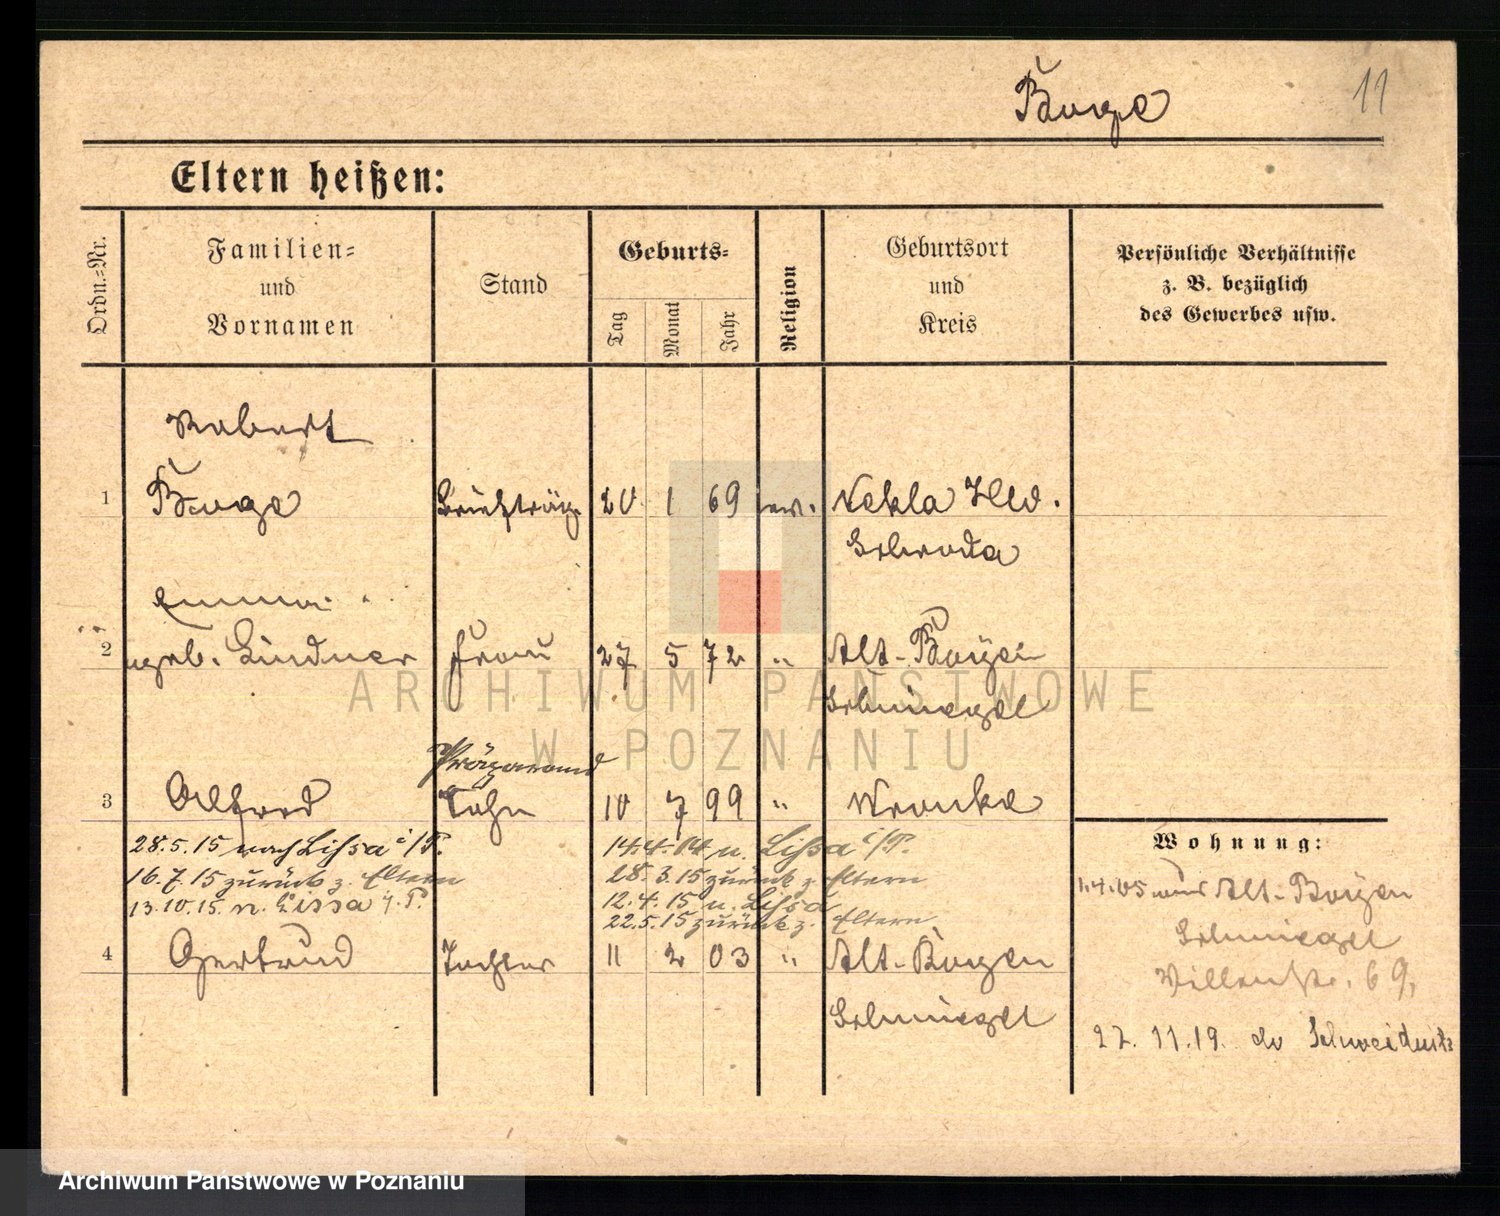 Bunge 11
Eltern heißen:
Ordn.=Nr.
Familien=
und
Vornamen
Stand
Geburts=
Tag
Monat
Jahr
Religion
Geburtsort
und
Kreis
Persönliche Verhältnisse
z. B. bezüglich
des Gewerbes usw.
Robert
1 Bunge Briefträg. 20 1 69 ev. Nekla Hld.
Schroda
Emma
2 geb. Lindner Frau 27 5 72 " Alt-Boyen
Schmiegel
Präparand
3 Alfred Sohn 10 7 99 " Wronke
28.5.15 nach Lissa i/P. 14.4.14 n. Lissa i/P.
16.7.15 zurück z. Eltern 28.3.15 zurück z. Eltern
13.10.15. n. Lissa i. P. 12.4.15 n. Lissa
22.5.15 zurück z. Eltern
4 Gertrud Tochter 11 2 03 " Alt-Boyen
Schmiegel
Wohnung:
1.4.05 aus Alt-Boyen
Schmiegel
69,
27. 11.19. Schweidnitz
ARCHIWUM PAŃSTWOWE
W POZNANIU
Archiwum Państwowe w Poznaniu